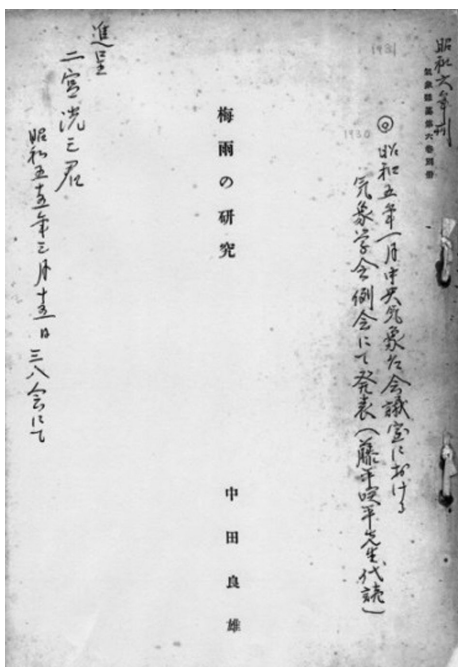 昭和六年刊
氣象雜纂第六卷別冊
1931
1930
◎昭和五年一月中央気象台会議室における
気象学会例会にて発表(藤原咲平先生代読)
梅雨の研究
中田良雄
進呈
二宮洸三君
昭和五十五年三月十五日 三八会にて